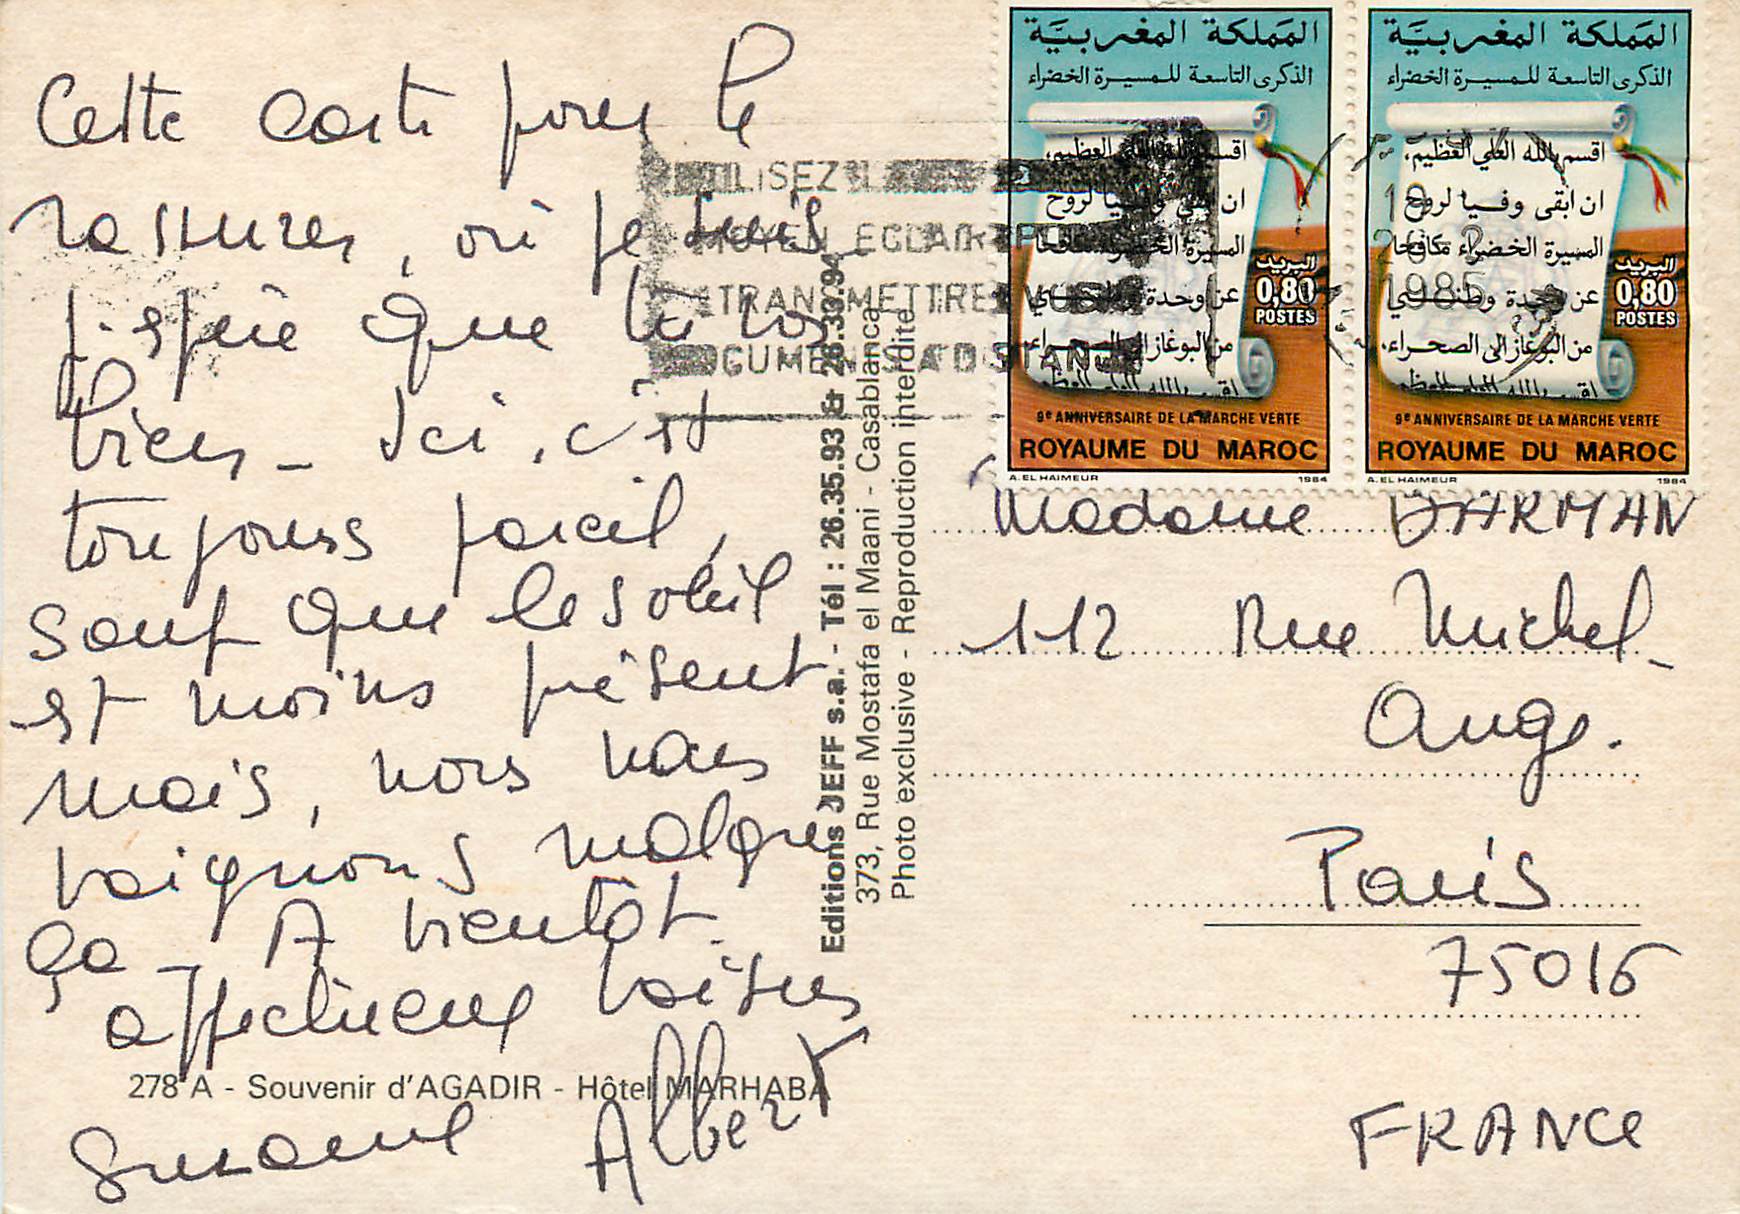 Cette carte pour te
rassurer, où je suis
j'espère que tu vas
bien - Ici, c'est
toujours pareil,
sauf que le soleil
est moins présent
mais, nous nous
baignons malgré
ça - A bientôt.
affectueux baisers
Suzanne Albert
278 A - Souvenir d'AGADIR - Hôtel MARHABA
Editions JEFF s.a. - Tél : 26.35.93 & 26.39.94
373, Rue Mostafa el Maani - Casablanca
Photo exclusive - Reproduction interdite
UTILISEZ LA
MOYEN ECLAIR POUR
TRANSMETTRE VOS
DOCUMENTS A DISTANCE
المملكة المغربية
الذكرى التاسعة للمسيرة الخضراء
اقسم بالله العلي العظيم،
ان ابقى وفيا لروح
المسيرة الخضراء مكافحا
عن وحدة وطني
من البوغاز الى الصحراء.
البريد
0,80
POSTES
9e ANNIVERSAIRE DE LA MARCHE VERTE
ROYAUME DU MAROC
A. EL HAIMEUR 1984
المملكة المغربية
الذكرى التاسعة للمسيرة الخضراء
اقسم بالله العلي العظيم،
ان ابقى وفيا لروح
المسيرة الخضراء مكافحا
عن وحدة وطني
من البوغاز الى الصحراء.
البريد
0,80
POSTES
9e ANNIVERSAIRE DE LA MARCHE VERTE
ROYAUME DU MAROC
A. EL HAIMEUR 1984
18
26-2
1985
Madame DARMAN
112 Rue Michel-
Ange.
Paris
75016
FRANCE